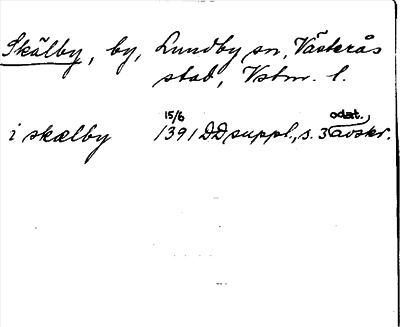 Skälby, by, Lundby sn, Västerås
stad, Vstm. l.
i skælby 15/6 1391 DD suppl., s. 3 odat. avskr.